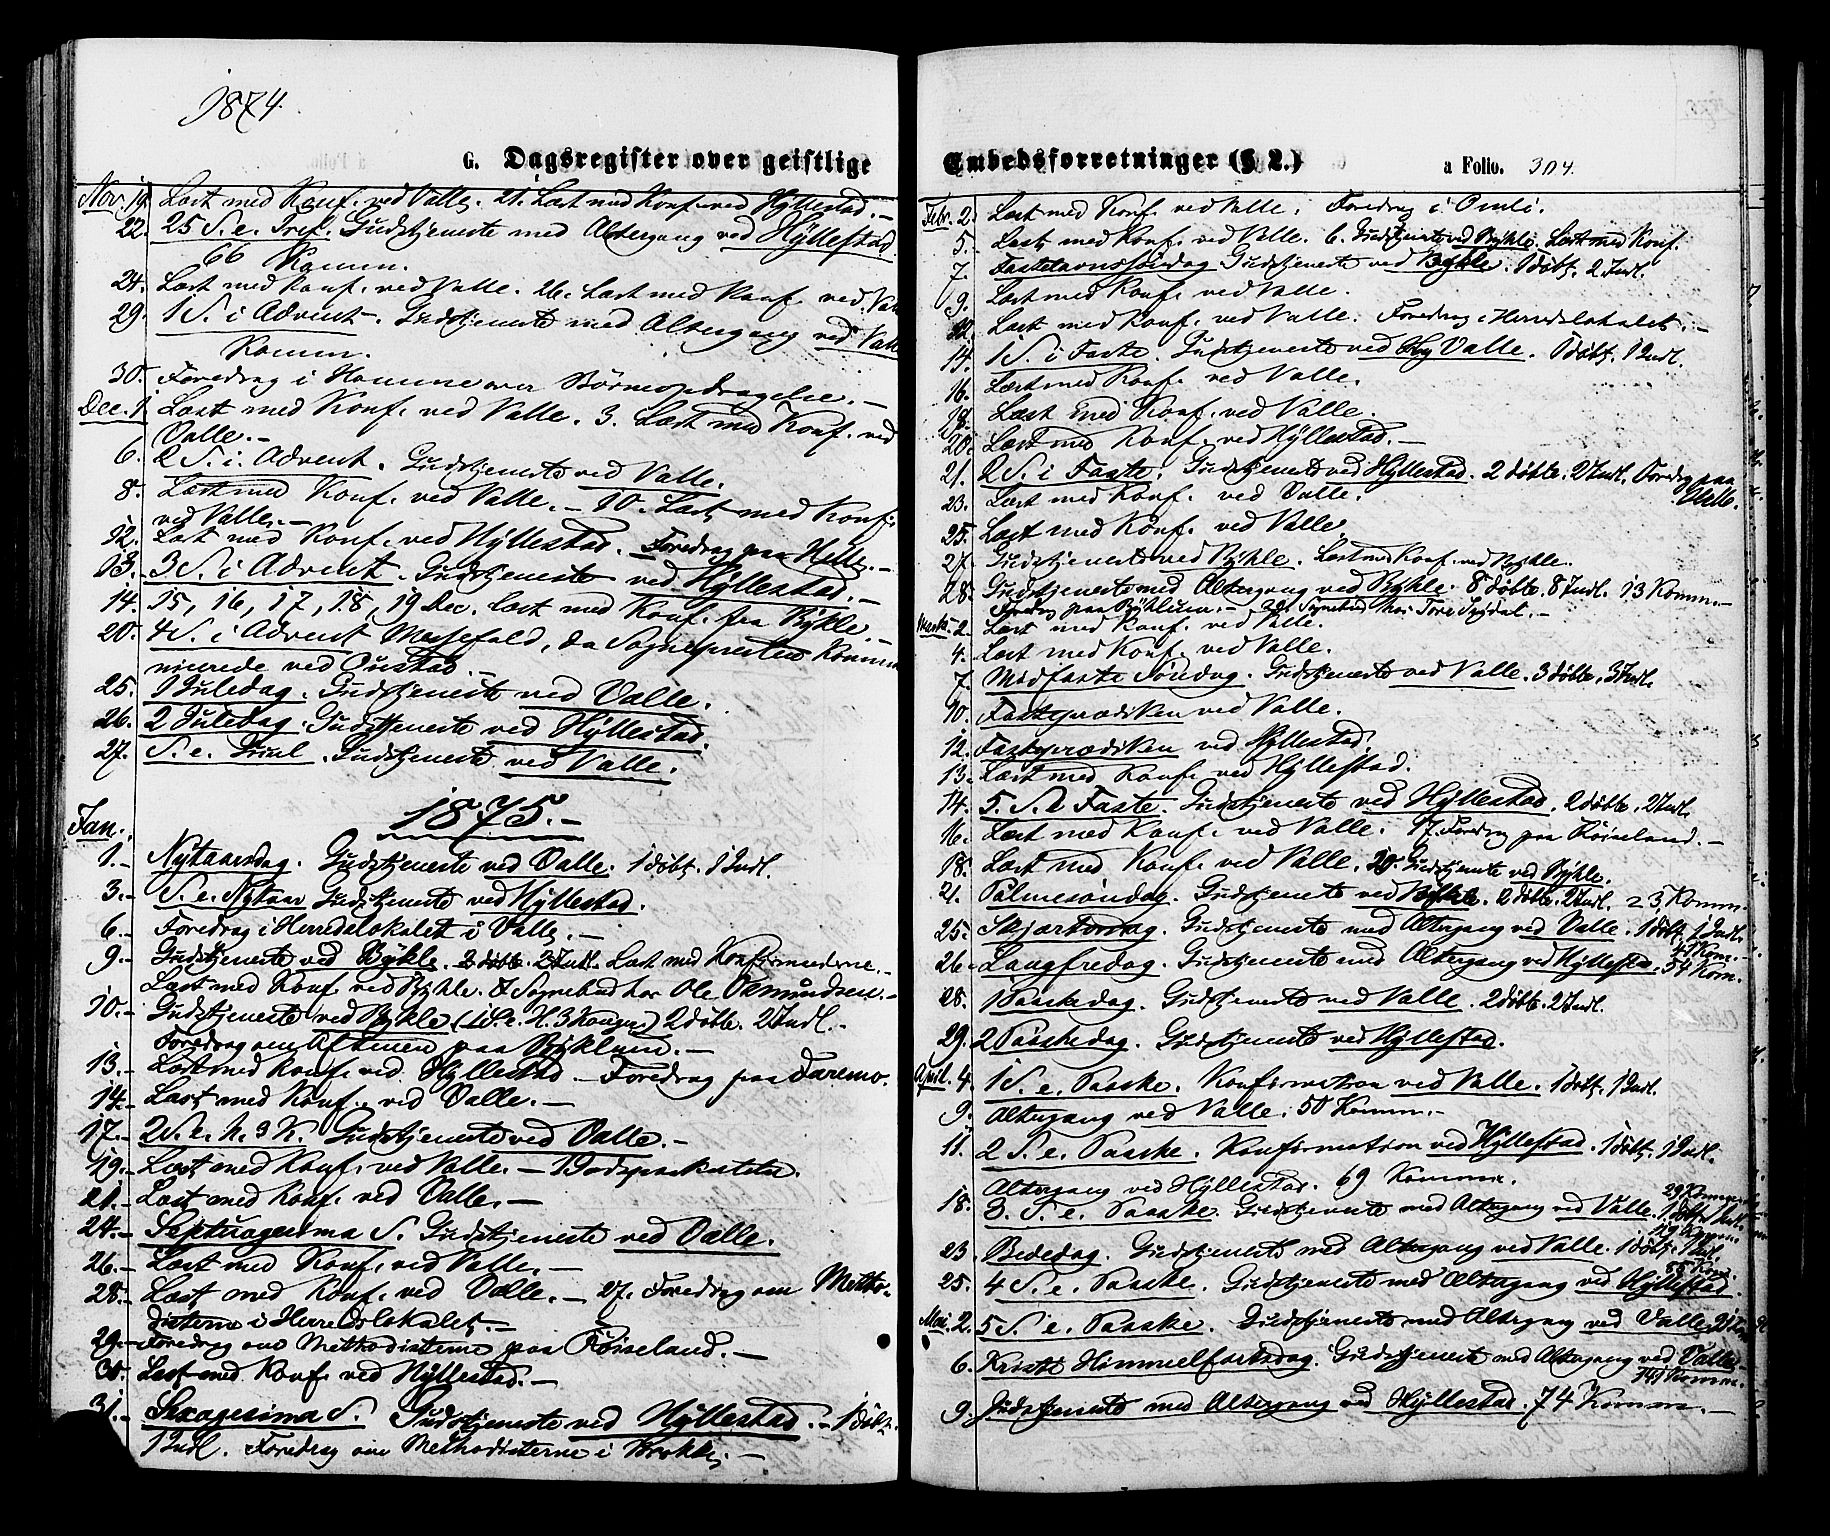 1874.
G. Dagsregister over geistlige
Nov. 19. Læst med Konf. ved Valle. 21. Læst med Konf. ved Hyllestad. -
22. 25 S. e. Tref. Gudstjeneste med Altergang ved Hyllestad
66 Komm.
24. Læst med Konf. ved Valle. 26. Læst med Konf. ved Valle
29. 1 S. i Advent. Gudstjeneste med Altergang ved Valle
Komm.
30. Foredrag i Homme over Børneopdragelse. -
Dec. 1. Læst med Konf. ved Valle. 3. Læst med Konf. ved
Valle. -
6. 2 S. i. Advent. Gudstjeneste ved Valle.
8. Læst med Konf. ved Valle. - 10. Læst med Konf.
ved Valle. -
12. Læst med Konf. ved Hyllestad. Foredrag paa Helle. -
13. 3 S. i Advent. Gudstjeneste ved Hyllestad. -
14. 15, 16, 17, 18, 19 Dec. læst med Konf. fra Bykle. -
20. 4 S. i Advent Messefald, da Sognepresten kommu-
nicerede ved Oustad. -
25. 1 Juledag. Gudstjeneste ved Valle.
26. 2 Juledag. Gudstjeneste ved Hyllestad.
27. S. e. Juul. Gudstjeneste ved Valle.
1875. -
Jan.
1. - Nytaarsdag. Gudstjeneste ved Valle. 1 døbt. 1 Indl.
3. - S. e. Nytaar Gudstjeneste ved Hyllestad.
6. - Foredrag i Herredslokalet i Valle. -
9. - Gudstjeneste ved Bykle. 2 døbte. 2 Indl. Læst med Konfirmanderne. -
Læst med Konf. ved Bykle. & Sognebud hos Ole Osmundsen. -
10. - Gudstjeneste ved Bykle (1 S. e. H. 3 Konger) 2 døbte. 2 Indl. -
Foredrag om Aftenen paa Byklum. -
13. - Læst med Konf. ved Hyllestad - Foredrag paa Faremo.
14. - Læst med Konf. ved Valle. -
17. - 2 S. e. h. 3 K. Gudstjeneste ved Valle. -
19. - Læst med Konf. ved Valle. -
21. - Læst med Konf. ved Valle. -
24. - Septuagesima S. Gudstjeneste ved Valle.
26. - Læst med Konf. ved Valle. -
28. - Læst med Konf. ved Valle. - 27. Foredrag om Metho-
disterne i Herredslokalet. -
29. - Foredrag om Methodisterne paa Røiseland. -
30. Læst med Konf. ved Hyllestad. -
31. - Sexagesima S. Gudstjeneste ved Hyllestad. - 1 døbt.
1 Indl. Foredrag om Methodisterne i Brokke. -
Embedsforretninger (§ 2.)
a Folio. 304.
Febr. 2. Læst med Konf. ved Valle. Foredrag i Omli.
5. Læst med Konf. ved Valle. 6. Gudstjeneste ved Bykle. Læst med Konf.
7. Fastelavnssøndag Gudstjeneste ved Bykle. 1 døbt. 2 Indl.
9. Læst med Konf. ved Valle.
Læst med Konf. ved Valle. Foredrag i Herredslokalet. -
14. 1 S. i Faste. Gudstjeneste ved Valle. 1 døbt. 1 Indl.
16. Læst med Konf. ved Valle.
18. Læst med Konf. ved Valle.
20. Læst med Konf. ved Hyllestad. -
21. 2 S. i Faste. Gudstjeneste ved Hyllestad. 2 døbte. 2 Indl. Foredrag paa
23. Læst med Konf. ved Valle.
25. Læst med Konf. ved Valle.
27. Gudstjeneste ved Bykle. Læst med Konf. ved Bykle.
28. Gudstjeneste med Altergang ved Bykle. 8 døbte. 8 Indl. 13 Komm. -
Foredrag paa Byklum. - Sognebud hos Tore -
Marts 2. Læst med Konf. ved Valle.
4. Læst med Konf. ved Valle.
7. Midfaste Søndag. Gudstjeneste ved Valle. 3 døbte. 3 Indl.
10. Fasteprædiken ved Valle.
12. Fasteprædiken ved Hyllestad.
13. Læst med Konf. ved Hyllestad.
14. 5. S. i Faste. Gudstjeneste ved Hyllestad. 2 døbte. 2 Indl.
16. Læst med Konf. ved Valle. 17. Foredrag paa Røiseland. -
18. Læst med Konf. ved Valle. 20. Gudstjeneste ved Bykle.
21. Palmesøndag. Gudstjeneste ved Bykle. 2 døbte. 2 Indl. 23 Komm.
25. Skjærtorsdag. Gudstjeneste med Altergang ved Valle. 1 døbt. 1 Indl.
47 Kom.
26. Langfredag. Gudstjeneste med Altergang ved Hyllestad. 54 Kom.
28. 1 Paaskedag. Gudstjeneste ved Valle. 2 døbte. 2 Indl.
29. 2 Paaskedag. Gudstjeneste ved Hyllestad.
April. 4. 1 S. e. Paaske. Konfirmation ved Valle. 1 døbt. 1 Indl.
9. Altergang ved Valle. 50 Komm. -
11. 2 S. e. Paaske. Konfirmation ved Hyllestad. 1 døbt. 1 Indl.
Altergang ved Hyllestad. 69 Komm.
18. 3. S. e. Paaske. Gudstjeneste med Altergang ved Valle. 1 døbt. 1 Indl.
23. Bededag. Gudstjeneste med Altergang ved Valle. 1 døbt. 1 Indl.
25. 4 S. e. Paaske. Gudstjeneste med Altergang ved Hyllestad.
Mai. 2. 5 S. e. Paaske. Gudstjeneste med Altergang ved Valle
6. Kristi Himmelfartsdag. Gudstjeneste med Altergang ved Valle -
141 Komm.
9. Gudstjeneste med Altergang ved Hyllestad. 74 Komm. -